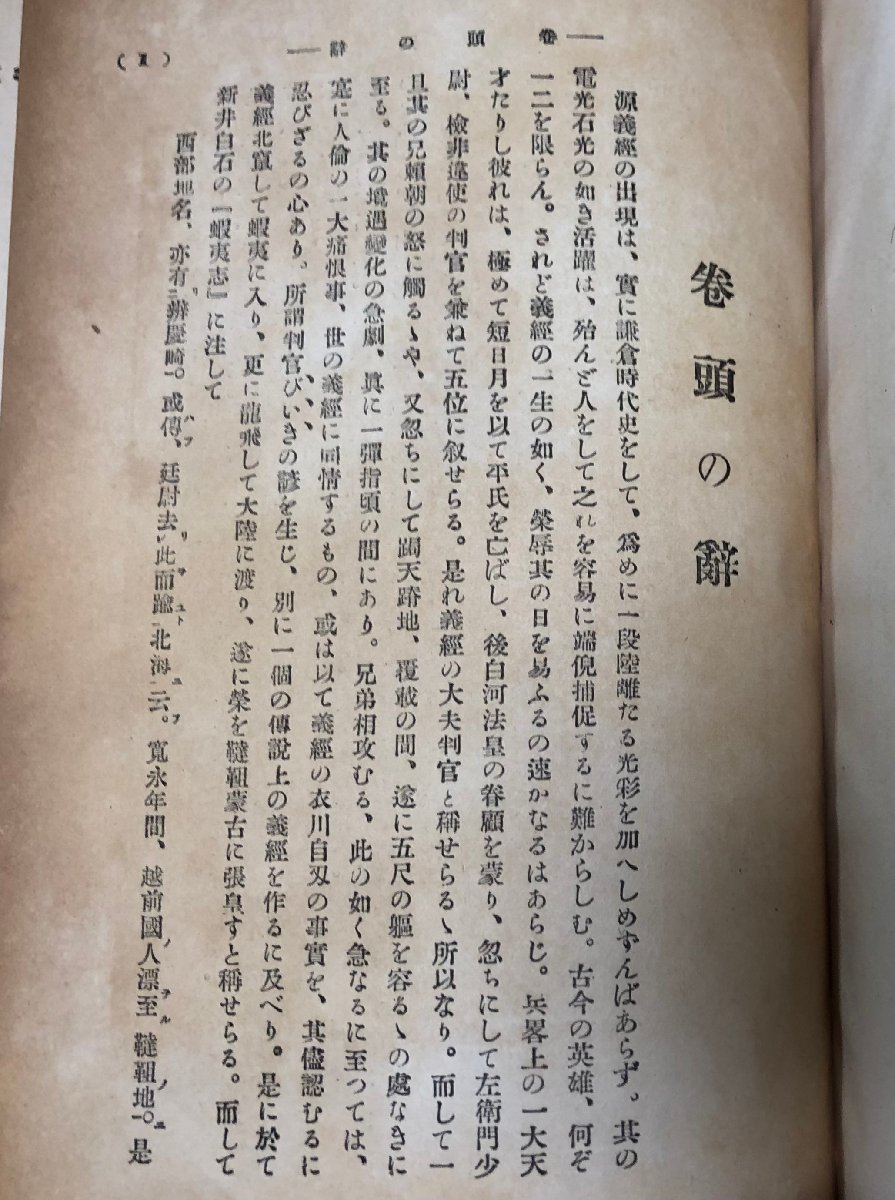 卷頭の辭
(1)
卷頭の辭
源義經の出現は、實に謙倉時代史をして、爲めに一段陸離たる光彩を加へしめずんばあらず。其の
電光石光の如き活躍は、殆んど人をして之れを容易に端倪捕促するに難からしむ。古今の英雄、何ぞ
一二を限らん。されど義經の一生の如く、榮辱其の日を易ふるの速かなるはあらじ。兵畧上の一大天
才たりし彼れは、極めて短日月を以て平氏を亡ばし、後白河法皇の眷顧を蒙り、忽ちにして左衛門少
尉、檢非違使の判官を兼ねて五位に叙せらる。是れ義經の大夫判官と稱せらるゝ所以なり。而して一
旦其の兄賴朝の怒に觸るゝや、又忽ちにして跼天蹐地、覆載の間、遂に五尺の軀を容るゝの處なきに
至る。其の境遇變化の急劇、眞に一彈指頃の間にあり。兄弟相攻むる、此の如く急なるに至つては、
寔に人倫の一大痛恨事、世の義經に同情するもの、或は以て義經の衣川自刄の事實を、其儘認むるに
忍びざるの心あり。所謂判官びいきの諺を生じ、別に一個の傳說上の義經を作るに及べり。是に於て
義經北竄して蝦夷に入り、更に龍飛して大陸に渡り、遂に榮を韃靼蒙古に張皇すと稱せらる。而して
新井白石の『蝦夷志』に注して
西部地名、亦有㆓辨慶崎㆒。或傳、廷尉去㆑此而踰㆓北海㆒云。寬永年間、越前國人漂至㆓韃靼地㆒。是